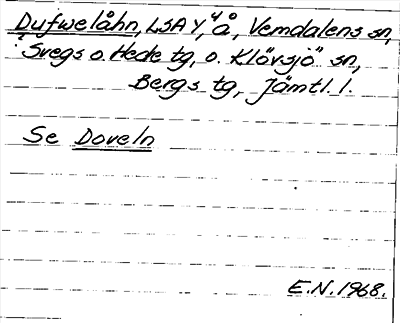 Dufwelåhn, LSA Y, 4 å, Vemdalens sn,
Svegs o. Hede tg, o. Klövsjö sn,
Bergs tg, Jämtl. l.
Se Doveln
E.N. 1968.